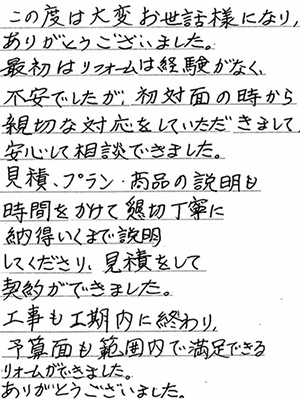 この度は大変お世話様になり、
ありがとうございました。
最初はリフォームは経験がなく、
不安でしたが、初対面の時から
親切な対応をしていただきまして、
安心して相談できました。
見積、プラン・商品の説明も
時間をかけて懇切丁寧に
納得いくまで説明
してくださり、見積をして
契約ができました。
工事も工期内に終わり、
予算面も範囲内で満足できる
リォームができました。
ありがとうございました。